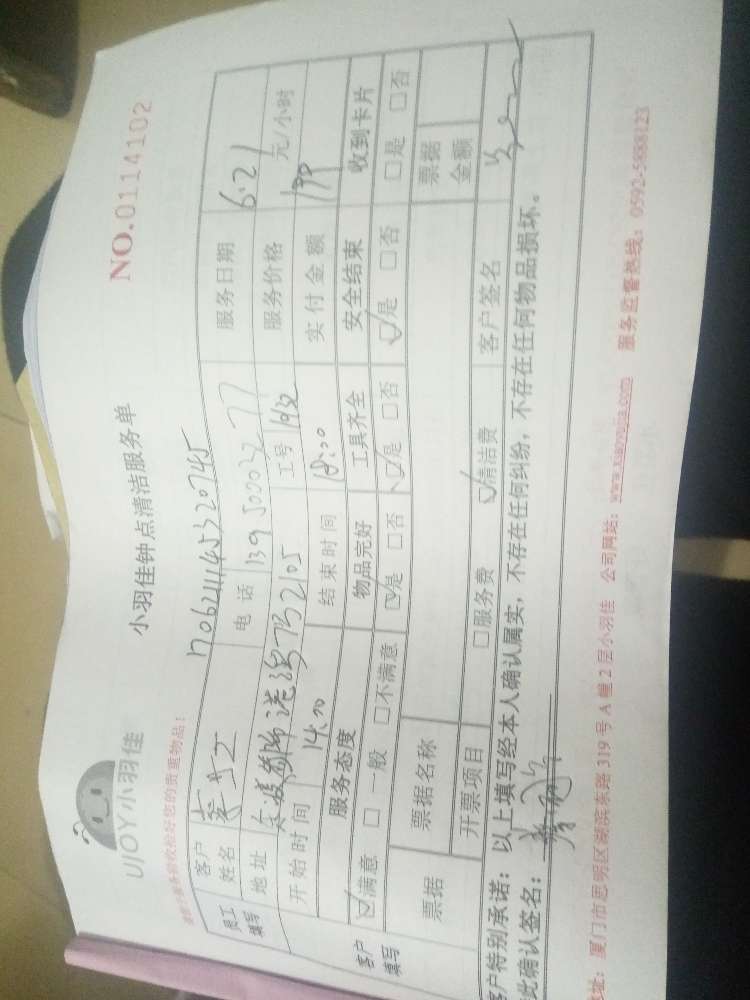 UJOY小羽佳
小羽佳钟点清洁服务单
NO.0114102
1706211145320745
员工填写
客户姓名
电话 13950003277
服务日期 6.21
地址
2105
工号
服务价格 元/小时
开始时间 14:00
结束时间 18:00
实付金额 199
客户填写
服务态度 物品完好 工具齐全 安全结束 收到卡片
☑满意 □一般 □不满意 ☑是 □否 ☑是 □否 ☑是 □否 □是 □否
票据 票据名称 票据金额
开票项目 □服务费 ☑清洁费 客户签名
客户特别承诺：以上填写经本人确认属实，不存在任何纠纷，不存在任何物品损坏。
此确认签名：
址：厦门市思明区湖滨东路319号A幢2层小羽佳 公司网站：www.xiaoyujia.com 服务监督热线：0592-5888123